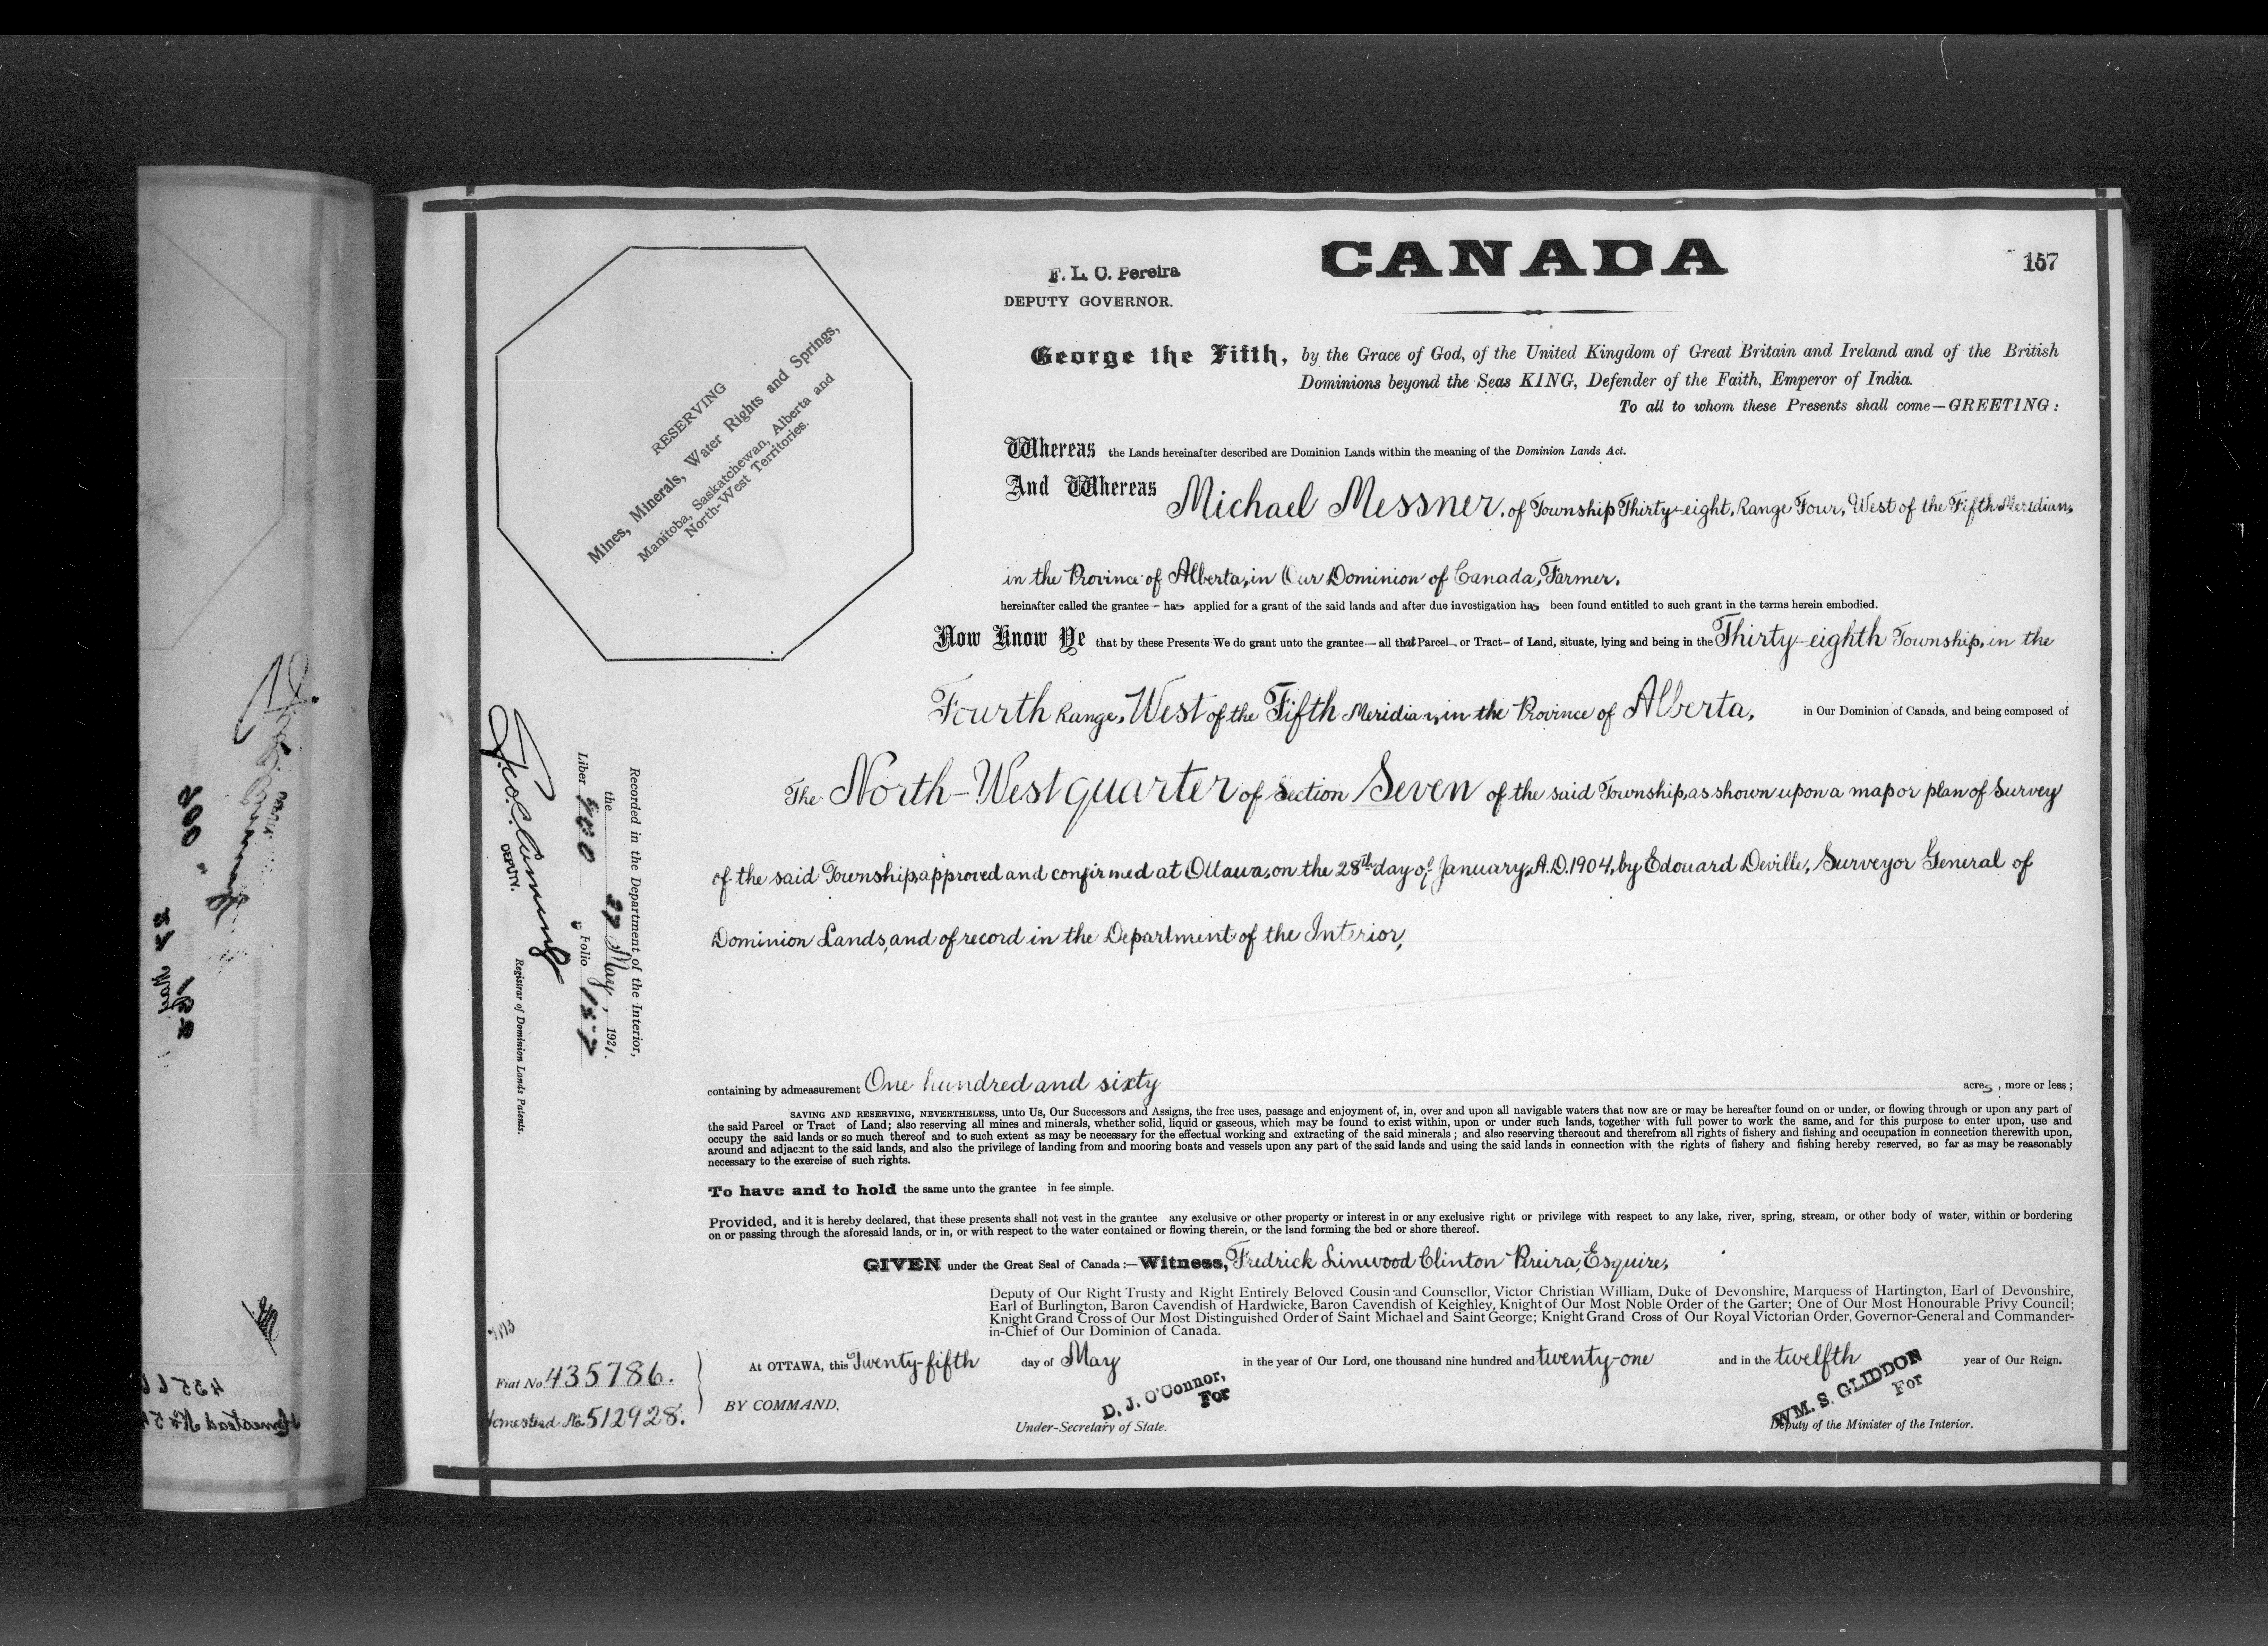 CANADA
157
F. L. C. Pereira
DEPUTY GOVERNOR.
George the Fifth, by the Grace of God, of the United Kingdom of Great Britain and Ireland and of the British
Dominions beyond the Seas KING, Defender of the Faith, Emperor of India.
To all to whom these Presents shall come—GREETING:
RESERVING
Mines, Minerals, Water Rights and Springs,
Manitoba, Saskatchewan, Alberta and
North-West Territories.
Whereas the Lands hereinafter described are Dominion Lands within the meaning of the Dominion Lands Act.
And Whereas Michael Messner, of Township Thirty-eight, Range Four, West of the Fifth Meridian,
in the Province of Alberta, in Our Dominion of Canada, Farmer,
hereinafter called the grantee — has applied for a grant of the said lands and after due investigation has been found entitled to such grant in the terms herein embodied.
Now Know Ye that by these Presents We do grant unto the grantee — all that Parcel — or Tract — of Land, situate, lying and being in the Thirty-eighth Township, in the
Fourth Range, West of the Fifth Meridian, in the Province of Alberta, in Our Dominion of Canada, and being composed of
The North-West quarter of Section Seven of the said Township, as shown upon a map or plan of Survey
of the said Township, approved and confirmed at Ottawa, on the 28th day of January, A.D. 1904, by Edouard Deville, Surveyor General of
Dominion Lands, and of record in the Department of the Interior,
containing by admeasurement One hundred and sixty acres , more or less ;
SAVING AND RESERVING, NEVERTHELESS, unto Us, Our Successors and Assigns, the free uses, passage and enjoyment of, in, over and upon all navigable waters that now are or may be hereafter found on or under, or flowing through or upon any part of
the said Parcel or Tract of Land; also reserving all mines and minerals, whether solid, liquid or gaseous, which may be found to exist within, upon or under such lands, together with full power to work the same, and for this purpose to enter upon, use and
occupy the said lands or so much thereof and to such extent as may be necessary for the effectual working and extracting of the said minerals ; and also reserving thereout and therefrom all rights of fishery and fishing and occupation in connection therewith upon,
around and adjacent to the said lands, and also the privilege of landing from and mooring boats and vessels upon any part of the said lands and using the said lands in connection with the rights of fishery and fishing hereby reserved, so far as may be reasonably
necessary to the exercise of such rights.
To have and to hold the same unto the grantee in fee simple.
Provided, and it is hereby declared, that these presents shall not vest in the grantee any exclusive or other property or interest in or any exclusive right or privilege with respect to any lake, river, spring, stream, or other body of water, within or bordering
on or passing through the aforesaid lands, or in, or with respect to the water contained or flowing therein, or the land forming the bed or shore thereof.
GIVEN under the Great Seal of Canada:—Witness, Fredrick Linwood Clinton Pereira, Esquire,
Deputy of Our Right Trusty and Right Entirely Beloved Cousin and Counsellor, Victor Christian William, Duke of Devonshire, Marquess of Hartington, Earl of Devonshire,
Earl of Burlington, Baron Cavendish of Hardwicke, Baron Cavendish of Keighley, Knight of Our Most Noble Order of the Garter; One of Our Most Honourable Privy Council;
Knight Grand Cross of Our Most Distinguished Order of Saint Michael and Saint George; Knight Grand Cross of Our Royal Victorian Order, Governor-General and Commander-
in-Chief of Our Dominion of Canada.
At OTTAWA, this Twenty-fifth day of May in the year of Our Lord, one thousand nine hundred and twenty-one and in the twelfth year of Our Reign.
BY COMMAND,
D. J. O'Connor,
For
Under-Secretary of State.
WM. S. GLIDDON
For
Deputy of the Minister of the Interior.
Fiat No. 435786.
Homestead No. 512928.
Recorded in the Department of the Interior,
the 27 May, 1921.
Liber Folio 157
DEPUTY.
Registrar of Dominion Lands Patents.